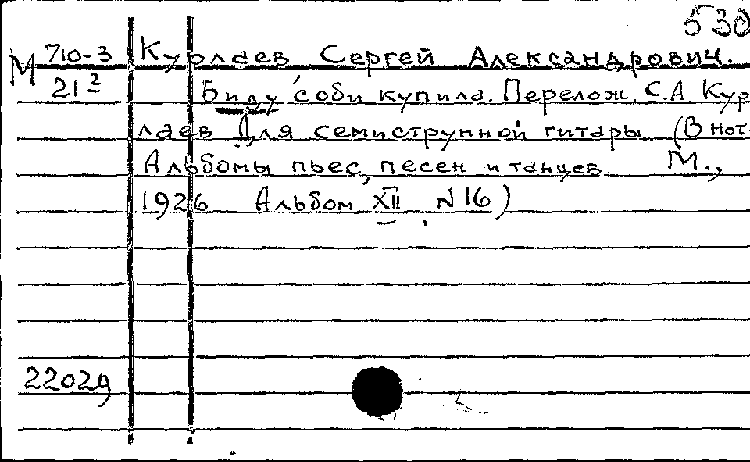 530
М 710-3 Курлаев Сергей Александрович.
21² Биду соби купила. Перелож. С.А Кур
лаев Для семиструнной гитары (В нот.
Альбомы пьес, песен и танцев М.,
1926 Альбом XII N 16)
22029